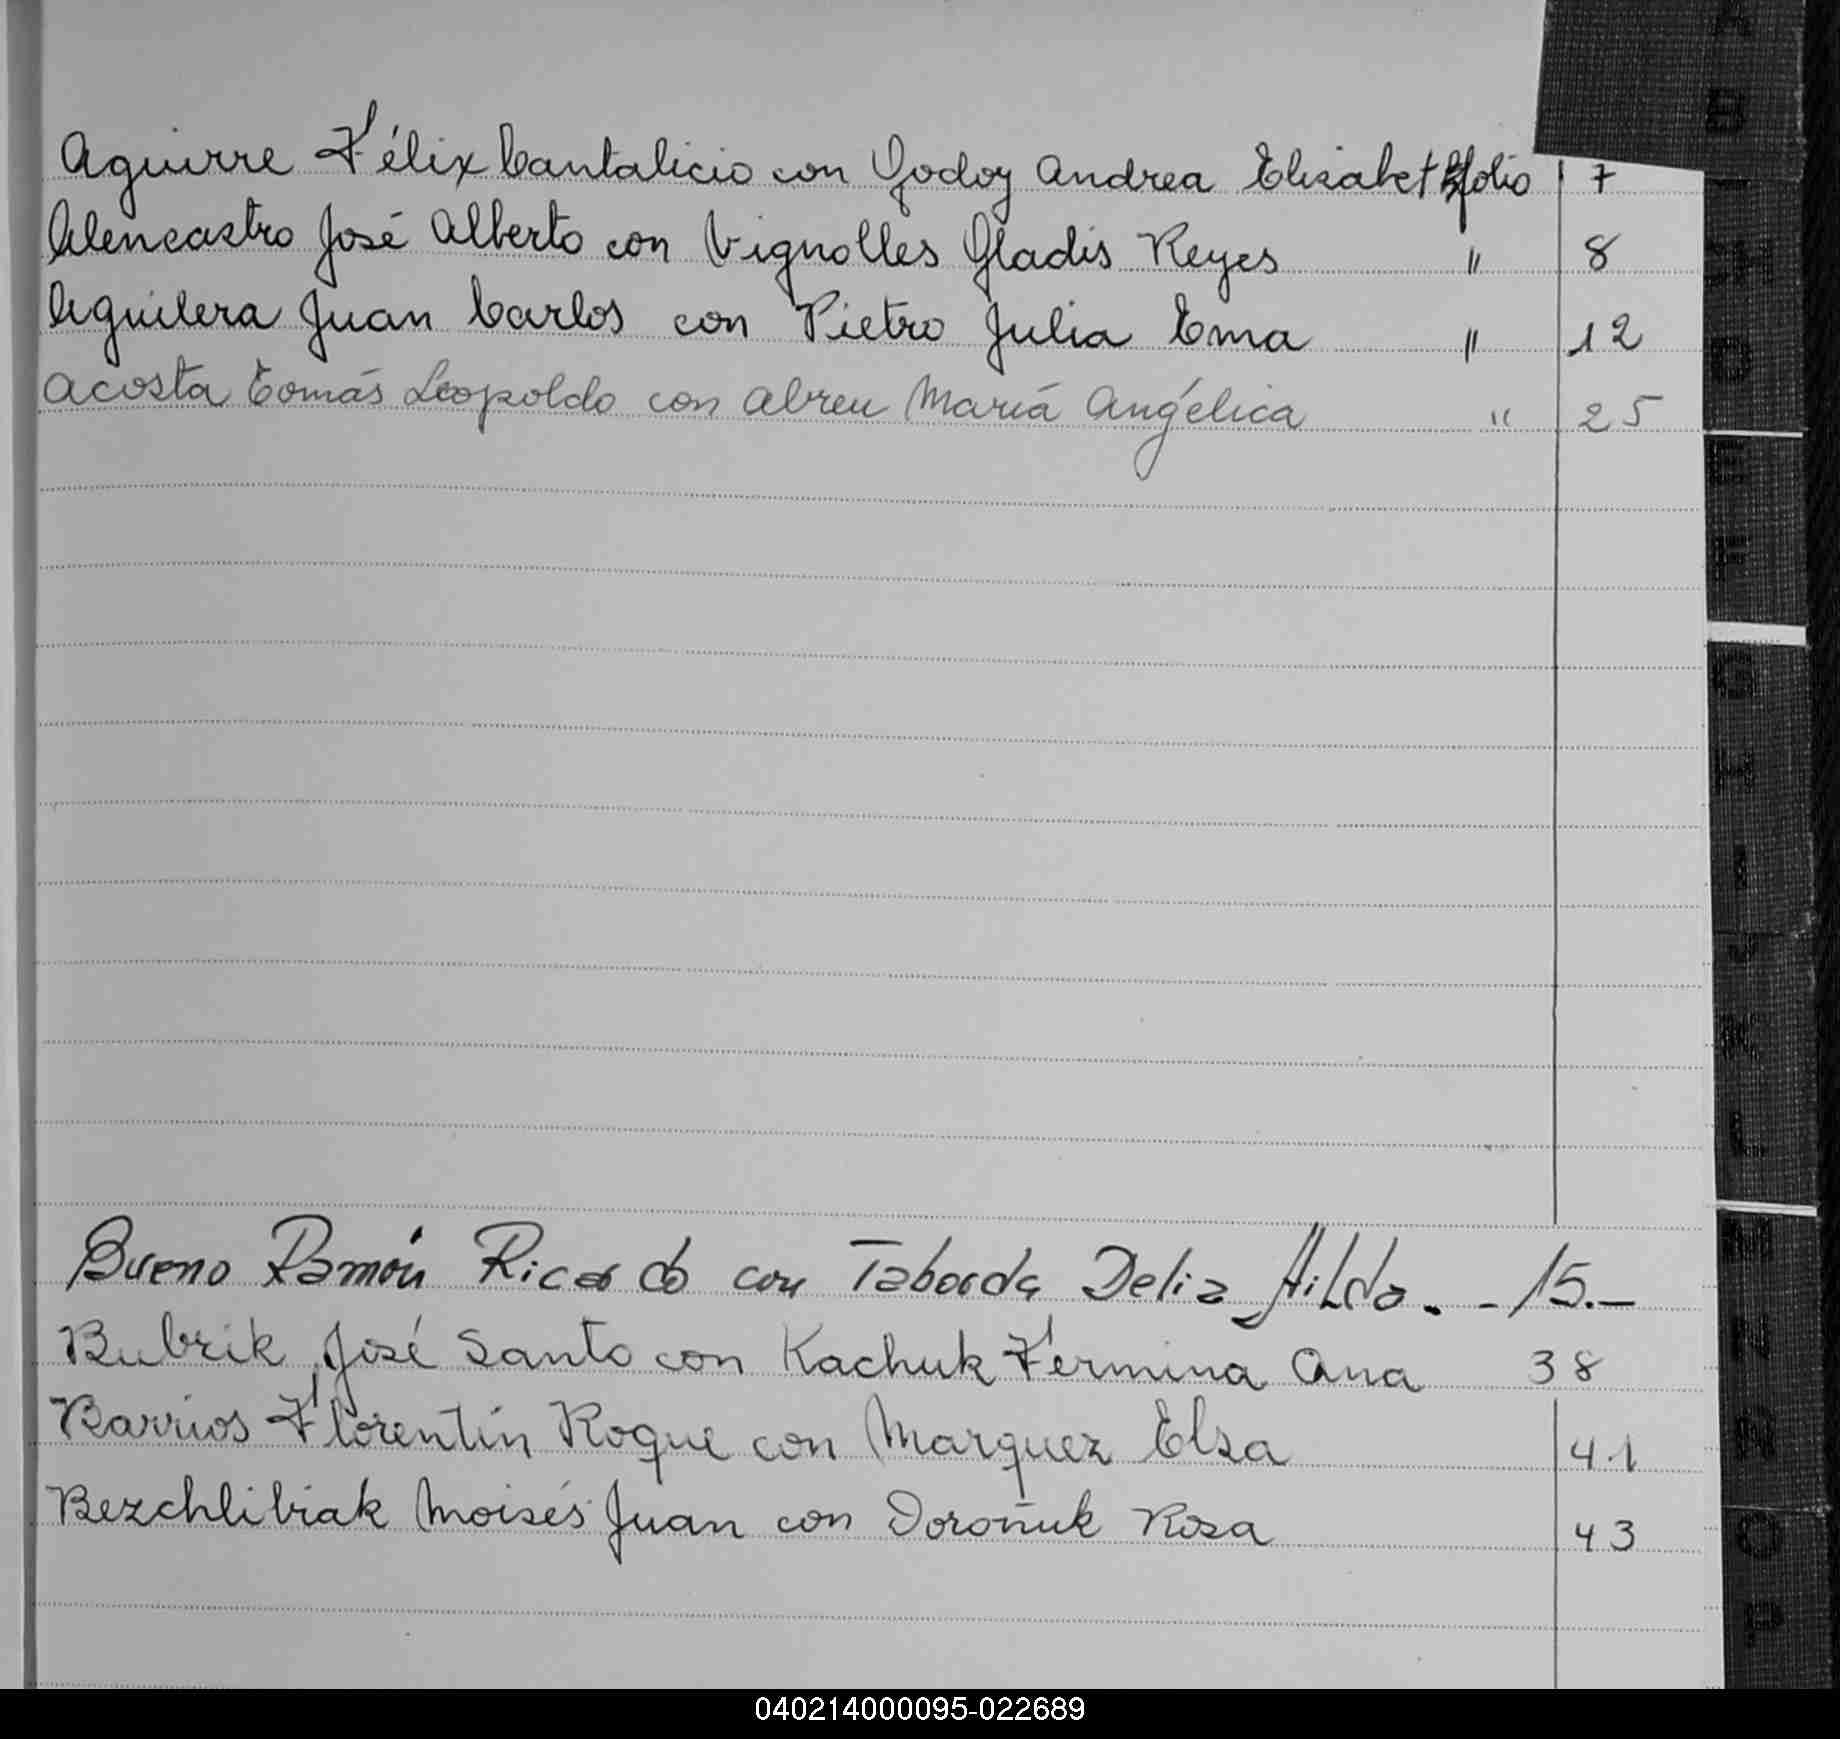 Aguirre Félix Cantalicio con Godoy Andrea Elisabet folio 7
Alencastro José Alberto con Vignolles Gladis Reyes " 8
Aguilera Juan Carlos con Pietro Julia Ema " 12
Acosta Tomás Leopoldo con Abreu Mariá Angélica " 25
Bueno Ramón Ricardo con Taborda Delia Hilda. - 15.-
Bubrik José Santo con Kachuk Fermina Ana 38
Barrios Florentín Roque con Marquez Elsa 41
Bezchlibiak Moisés Juan con Doroñuk Rosa 43
040214000095-022689